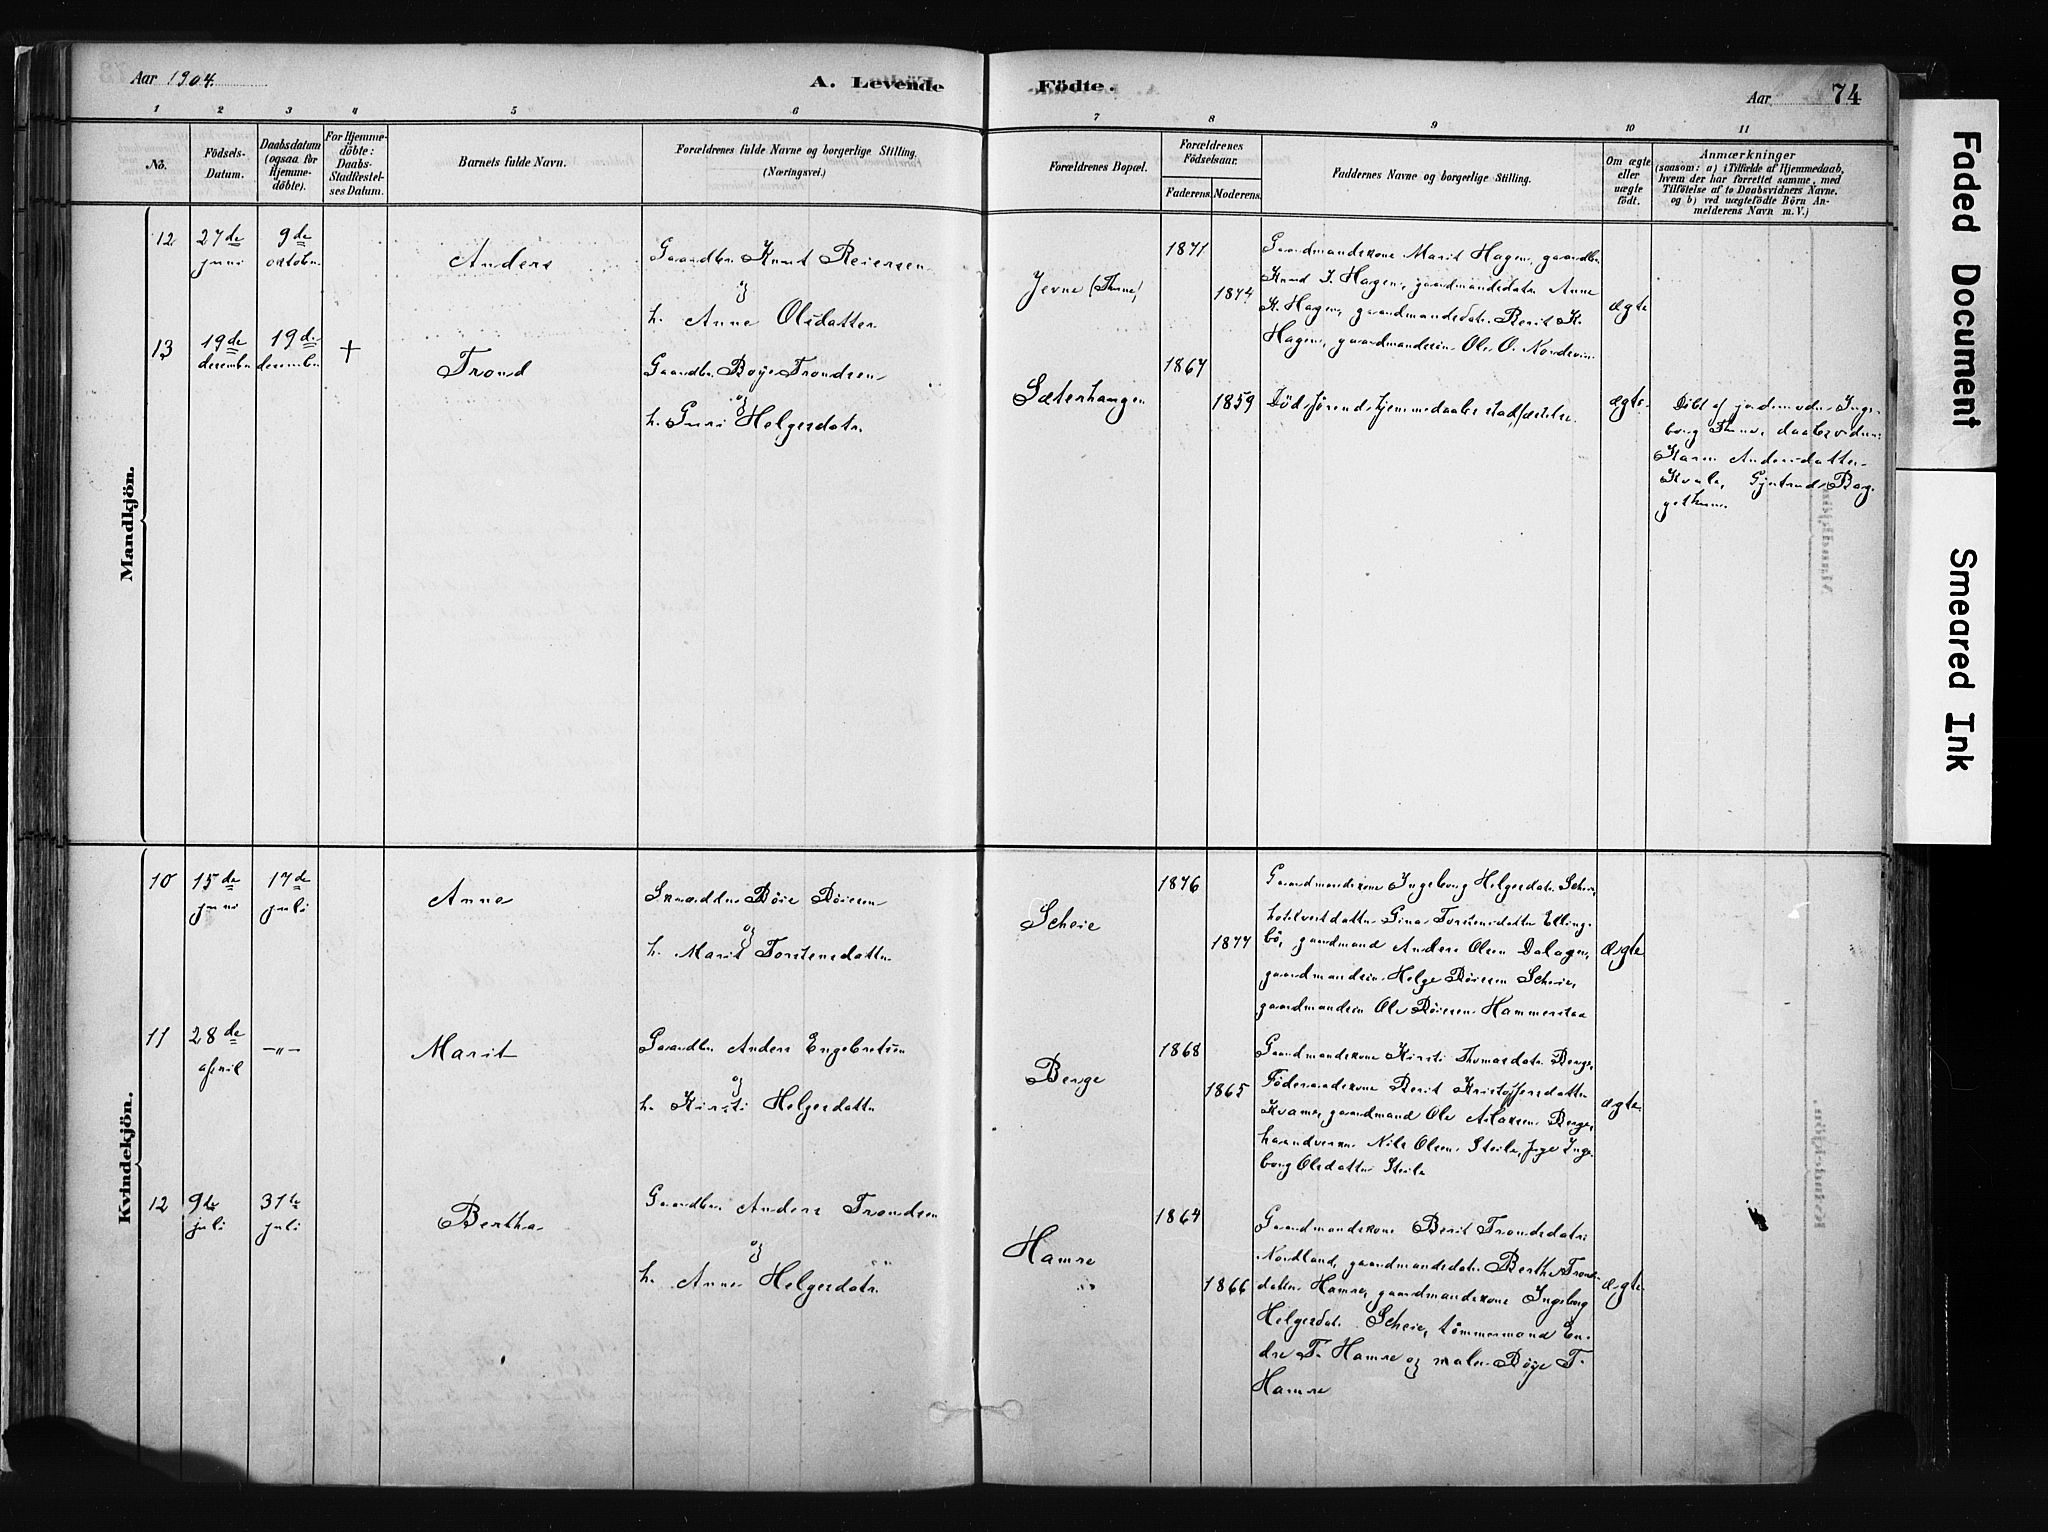 Aar 1904.
A. Levende
Födte.
Aar
74
1 2 3 4 5 6 7 8 9 10 11
No.
Födsels-
Datum.
Daabsdatum
(ogsaa for
Hjemme-
döbte).
For Hjemme-
döbte:
Daabs-
Stadfæstel-
ses Datum.
Barnets fulde Navn.
Forældrenes fulde Navne og borgerlige Stilling.
(Næringsvei.)
Forældrenes Bopæl.
Forældrenes
Födselsaar.
Faderens.
Moderens.
Faddernes Navne og borgerlige Stilling.
Om ægte
eller
uægte
födt.
Anmærkninger
(saasom: a) i Tilfælde af Hjemmedaab,
hvem der har forrettet samme, med
Tilföielse af to Daabsvidners Navne,
og b) ved uægtefödte Börn An-
melderens Navn m. V.)
Mandkjön.
12
27de
juni
9de
oktober
Anders
Gaardbr. Knut Reiersen
og
h. Anne Olsdatter
Jevne (Thune)
1871
1874
Gaardmandskone Marit Hagen, gaardbr.
Knud I. Hagen, gaardmandsdatr. Anne
K. Hagen, gaardmandsdatr. Berit K.
Hagen, gaardmandssön Ole O.
ægte
13
19de
december
19de
december
+
Trond
Gaardbr. Boye Trondsen
og
h. Guri Helgesdatr.
Sæterhaugen
1867
1859
Död förend hjemmedaabs stadfæstelse
ægte
Döbt af jordemoder Inge-
borg Thune, daabsvidner:
Karen Andersdatter
Kvale, Gjertrud Bag-
gethun
Kvindekjön.
10
15de
juni
17de
juli
Anne
Skrædder Böie Böiesen
og
h. Marit Torstensdatter
Scheie
1876
1877
Gaardmandskone Ingeborg Helgesdatr. Scheie,
datter Gina Torstensdatter Elling-
bö, gaardmand Anders Olsen Dalagen,
gaardmandssön Helge Böiesen Scheie,
gaardmandssön Ole Böiesen Hammerstad
ægte
11
28de
april
-"-
Marit
Gaardbr. Anders Engebretsen
og
h. Kirsti Helgesdatter
Berge
1868
1865
Gaardmandskone Kirsti Thomasdatr. Berge,
Föderaadskone Berit Kristoffersdatter
Kvame, gaardmand Ole Aslaksen Berge,
haandverker Nils Olsen Steile, pige Inge-
borg Olsdatter Steile
ægte
12
9de
juli
31te
juli
Bertha
Gaardbr. Anders Trondsen
og
h. Anne Helgesdatr.
Hamre
1864
1866
Gaardmandskone Berit Trondsdatr.
Nordland, gaardmandsdatr. Berthe Tronds-
datter Hamre, gaardmandskone Ingeborg
Helgesdatr. Scheie, tömmermand En-
dre T. Hamre og maler Böye T.
Hamre
ægte
Faded Document
Smeared Ink